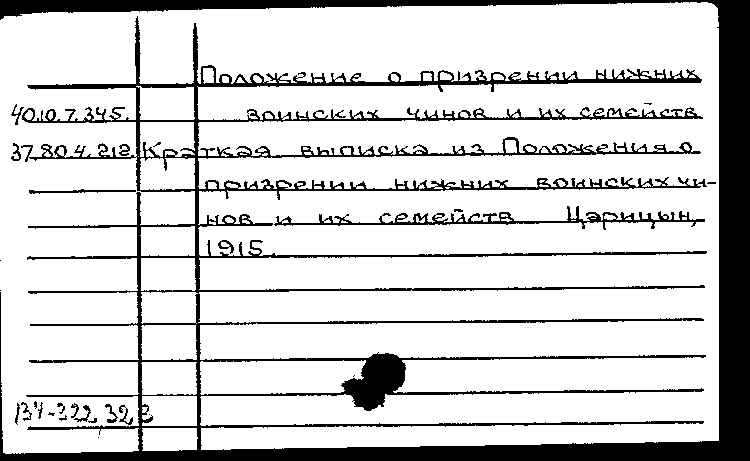 Положение о призрении нижних
40.10.7.345. воинских чинов и их семейств
37.80.4.212. Краткая выписка из Положения о
призрении нижних воинских чи-
нов и их семейств Царицын,
1915.
134-322,323